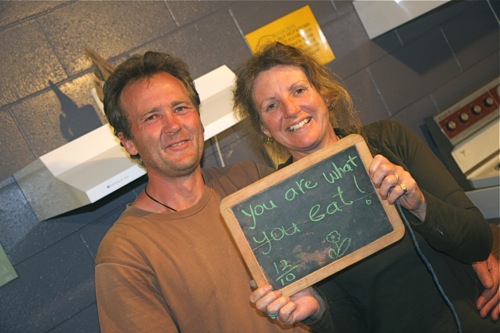 you are what
you eat!
12
10